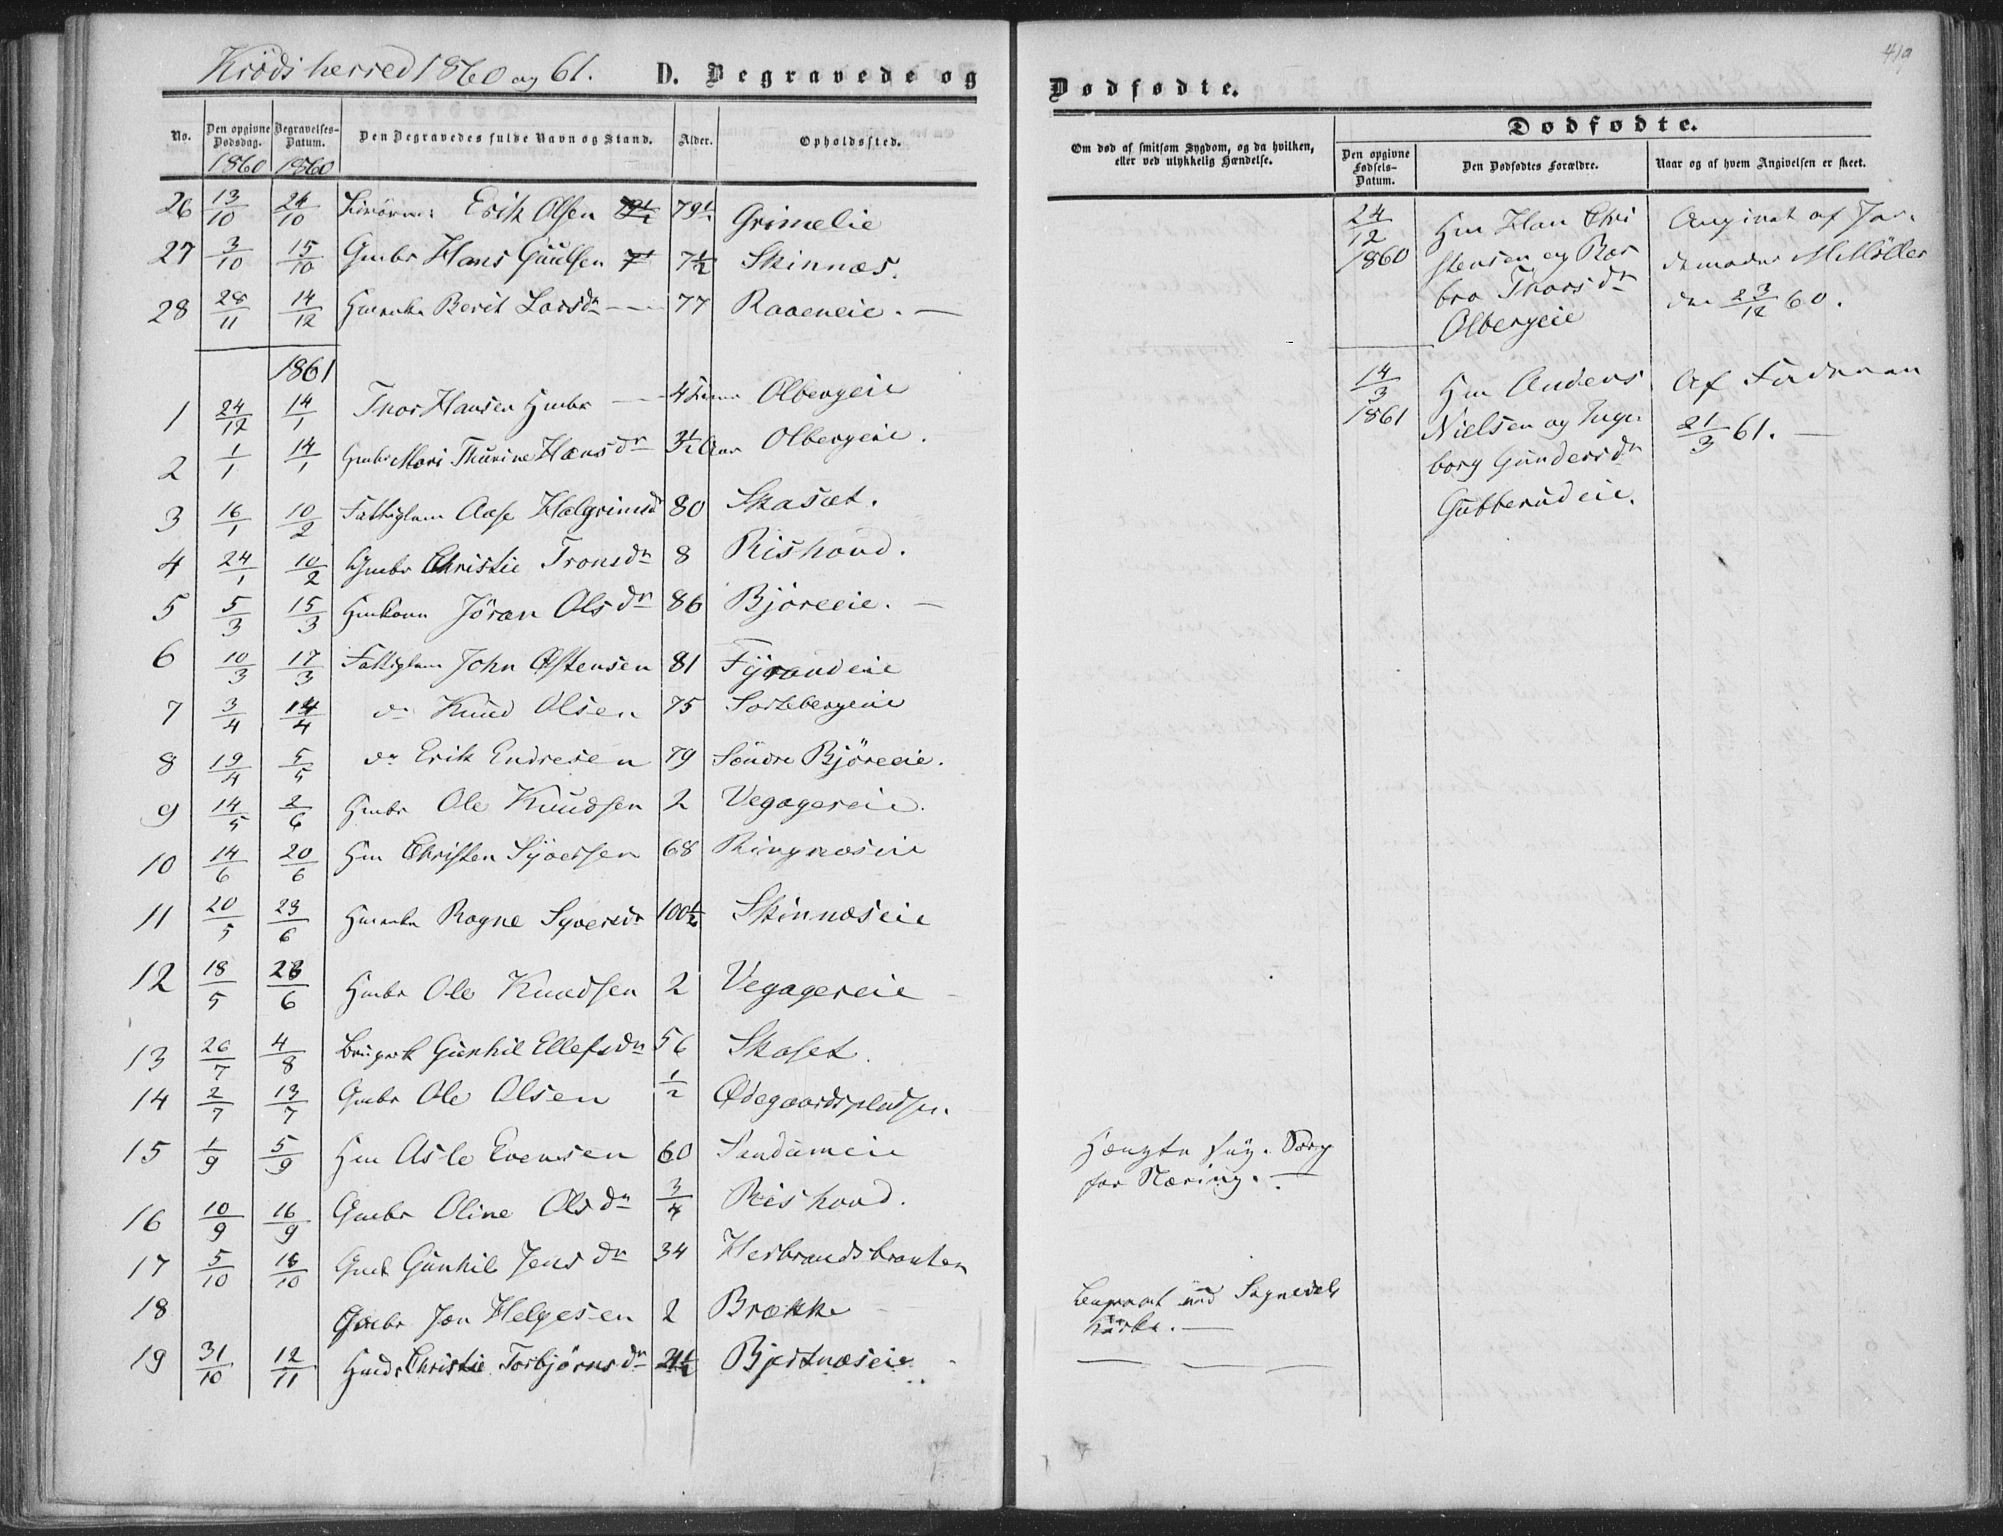 Krødsherred 1860 og 61. D. Begravede og
No. Den opgivne Dødsdag. 1860 Begravelses-Datum. 1860 Den Begravedes fulde Navn og Stand. Alder. Opholdssted.
26 13/10 24/10 Erik Olsen 79½ Grimelie
27 3/10 15/10 Gmbr Hans Guulsen 7½ Skinnæs.
28 28/11 14/12 Hmenke Berit Larsdr 77 Raaeneie.
1861
1 24/12 14/1 Thor Hansen Hmbr 4 Olbergeie
2 1/1 14/1 Hmbr Mari Thurine Hansdr 3½ Aar Olbergeie.
3 16/1 10/2 Fattiglem Aase Halgrimsd 80 Skasæt.
4 24/1 10/2 Gmbr Christie Tronsdr 8 Rishovd.
5 5/3 15/3 Hmkone Jøran Olsdr 86 Bjøreeie.
6 10/3 17/3 Fattiglem John Østensen 81 Fyrandeie
7 3/4 14/4 do Knud Olsen 75 Sortebergeie
8 19/4 5/5 do Erik Endresen 79 Søndre Bjøreeie.
9 14/5 2/6 Hmbr Ole Knudsen 2 Vegagereie.
10 14/6 20/6 Hm Christen Syversen 68 Ringnæseie
11 20/5 23/6 Hmenke Ragne Syversdr 100½ Skinnæseie
12 18/5 23/6 Hmbr Ole Knudsen 2 Vegagereie
13 26/7 4/8 Gunhil Ellefsdr 56 Skaset.
14 2/7 13/7 Gmbr Ole Olsen ½ Ødegaardspladsen.
15 1/9 5/9 Hm Asle Evensen 60 Sendumeie
16 10/9 16/9 Gmbr Oline Olsdr 3/4 Rishovd.
17 5/10 16/10 Gunhil Jensdr 34 Herbrandsbraaten
18 Gmbr Jon Helgesen 2 Brække
19 31/10 12/11 Christie Torbjørnsdr 21½ Bjertnæseie
419
Dødfødte.
Om død af smitsom Sygdom, og da hvilken,
eller ved ulykkelig Hændelse.
Dødfødte.
Den opgivne Fødsels-Datum. Den Dødfødtes Forældre. Naar og af hvem Angivelsen er skeet.
24/12 1860
Hm Han Chri
stensen og Bar
bro Thorsdr
Olbergeie
Angivet af Jor-
demoder M Møller
den 23/12 60.
14/3 1861
Hm Anders
Nielsen og Inge-
borg Gundersdr
Gubberudeie.
Af Faderen
21/3 61.
Hængte sig. Sorg
for Næring.
Begravet ved Sognedals
Kirke.